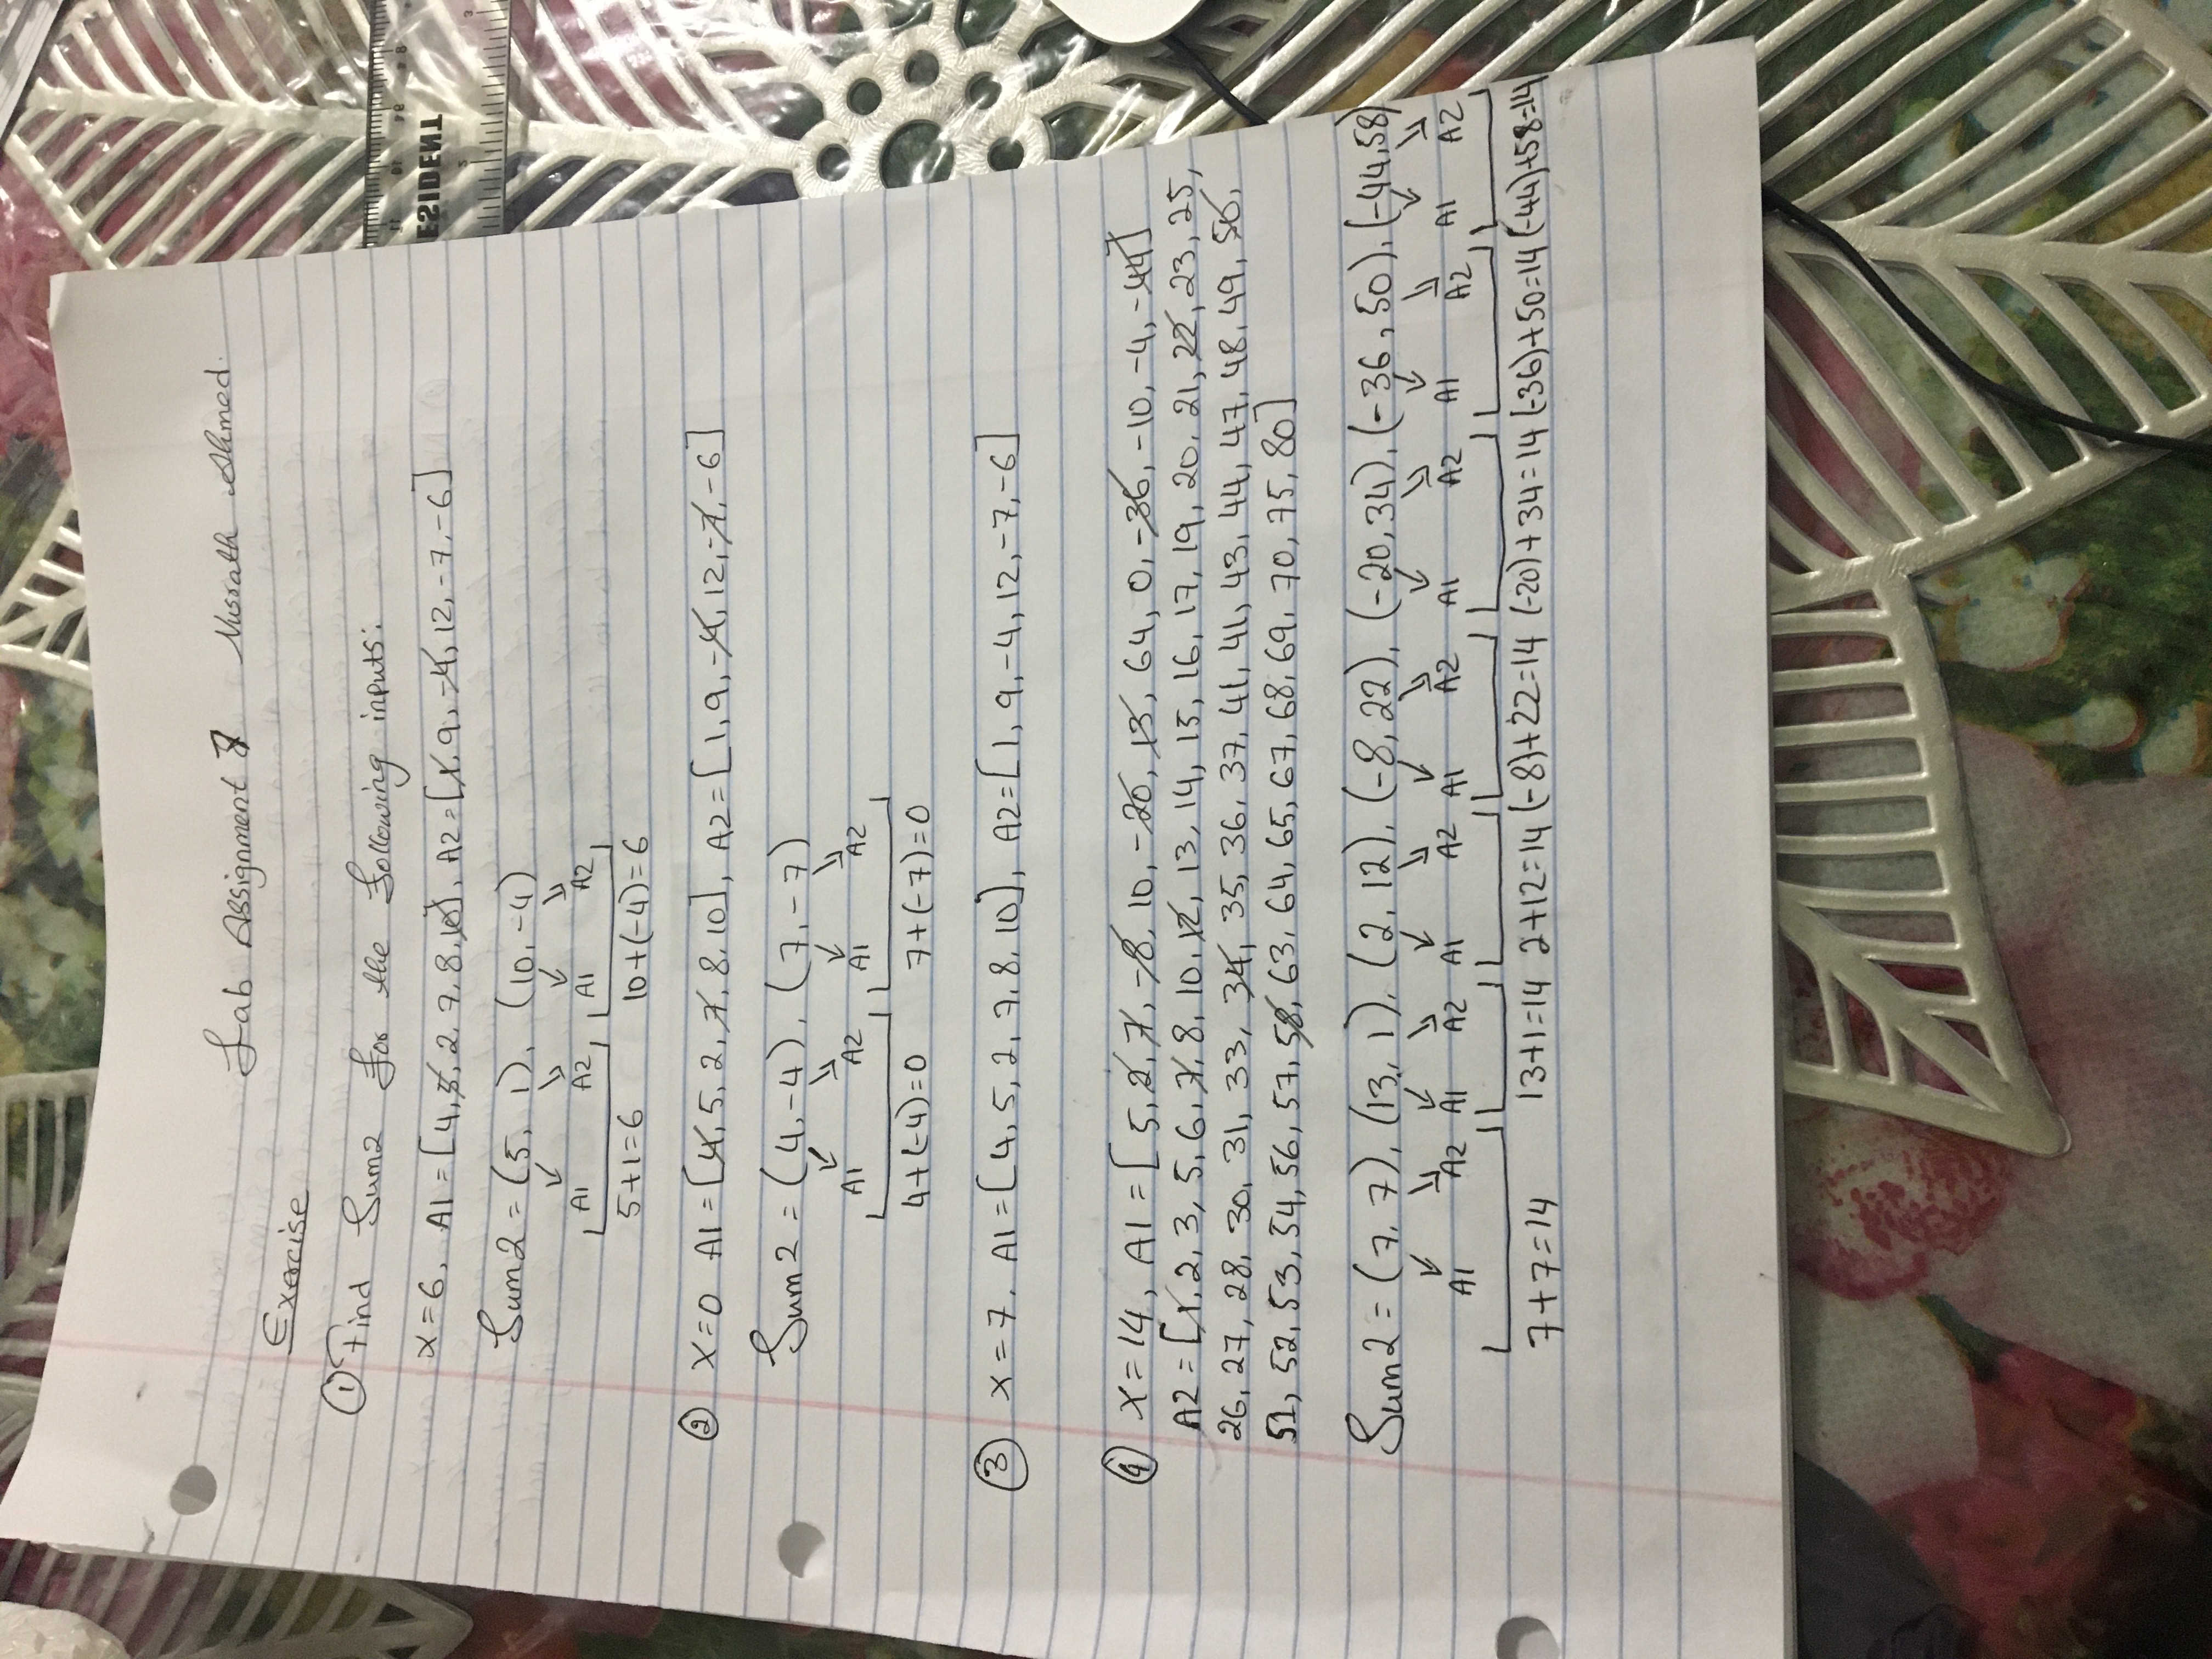 Lab Assignment 7 Nusrath Ahmed.
Exercise
① Find Sum2 for the following inputs:
x=6, A1=[4,5,2,7,8,10], A2=[1,9,-4,12,-7,-6]
Sum2=(5, 1), (10,-4)
A1 A2 A1 A2
5+1=6 10+(-4)=6
② x=0 A1=[4,5,2,7,8,10], A2=[1,9,-4,12,-7,-6]
Sum2=(4,-4), (7,-7)
A1 A2 A1 A2
4+(-4)=0 7+(-7)=0
③ x=7, A1=[4,5,2,7,8,10], A2=[1,9,-4,12,-7,-6]
④ x=14, A1=[5,2,7,-8,10,-20,13,64,0,-36,-10,-4,-44]
A2=[1,2,3,5,6,7,8,10,12,13,14,15,16,17,19,20,21,22,23,25,
26,27,28,30,31,33,34,35,36,37,41,41,43,44,47,48,49,50,
51,52,53,54,56,57,58,63,64,65,67,68,69,70,75,80]
Sum2=(7,7), (13,1), (2,12), (-8,22), (-20,34), (-36,50), (-44,58)
A1 A2 A1 A2 A1 A2 A1 A2 A1 A2 A1 A2 A1 A2
7+7=14 13+1=14 2+12=14 (-8)+22=14 (-20)+34=14 (-36)+50=14 (-44)+58=14
ESIDENT